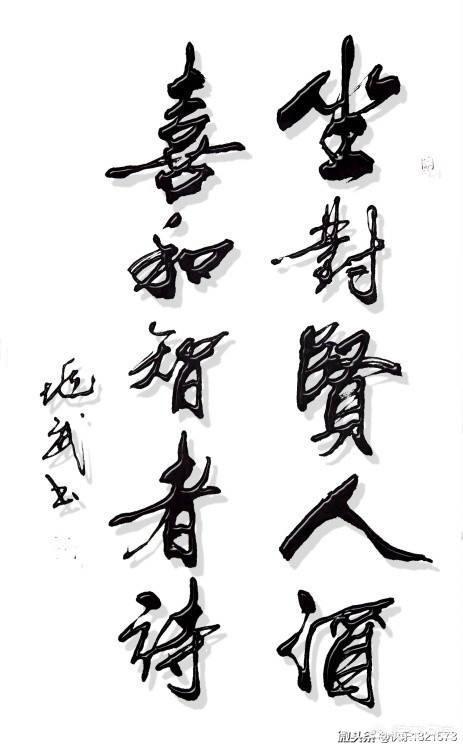 坐對賢人酒
喜和智者詩
武书
头条 @快乐1321573